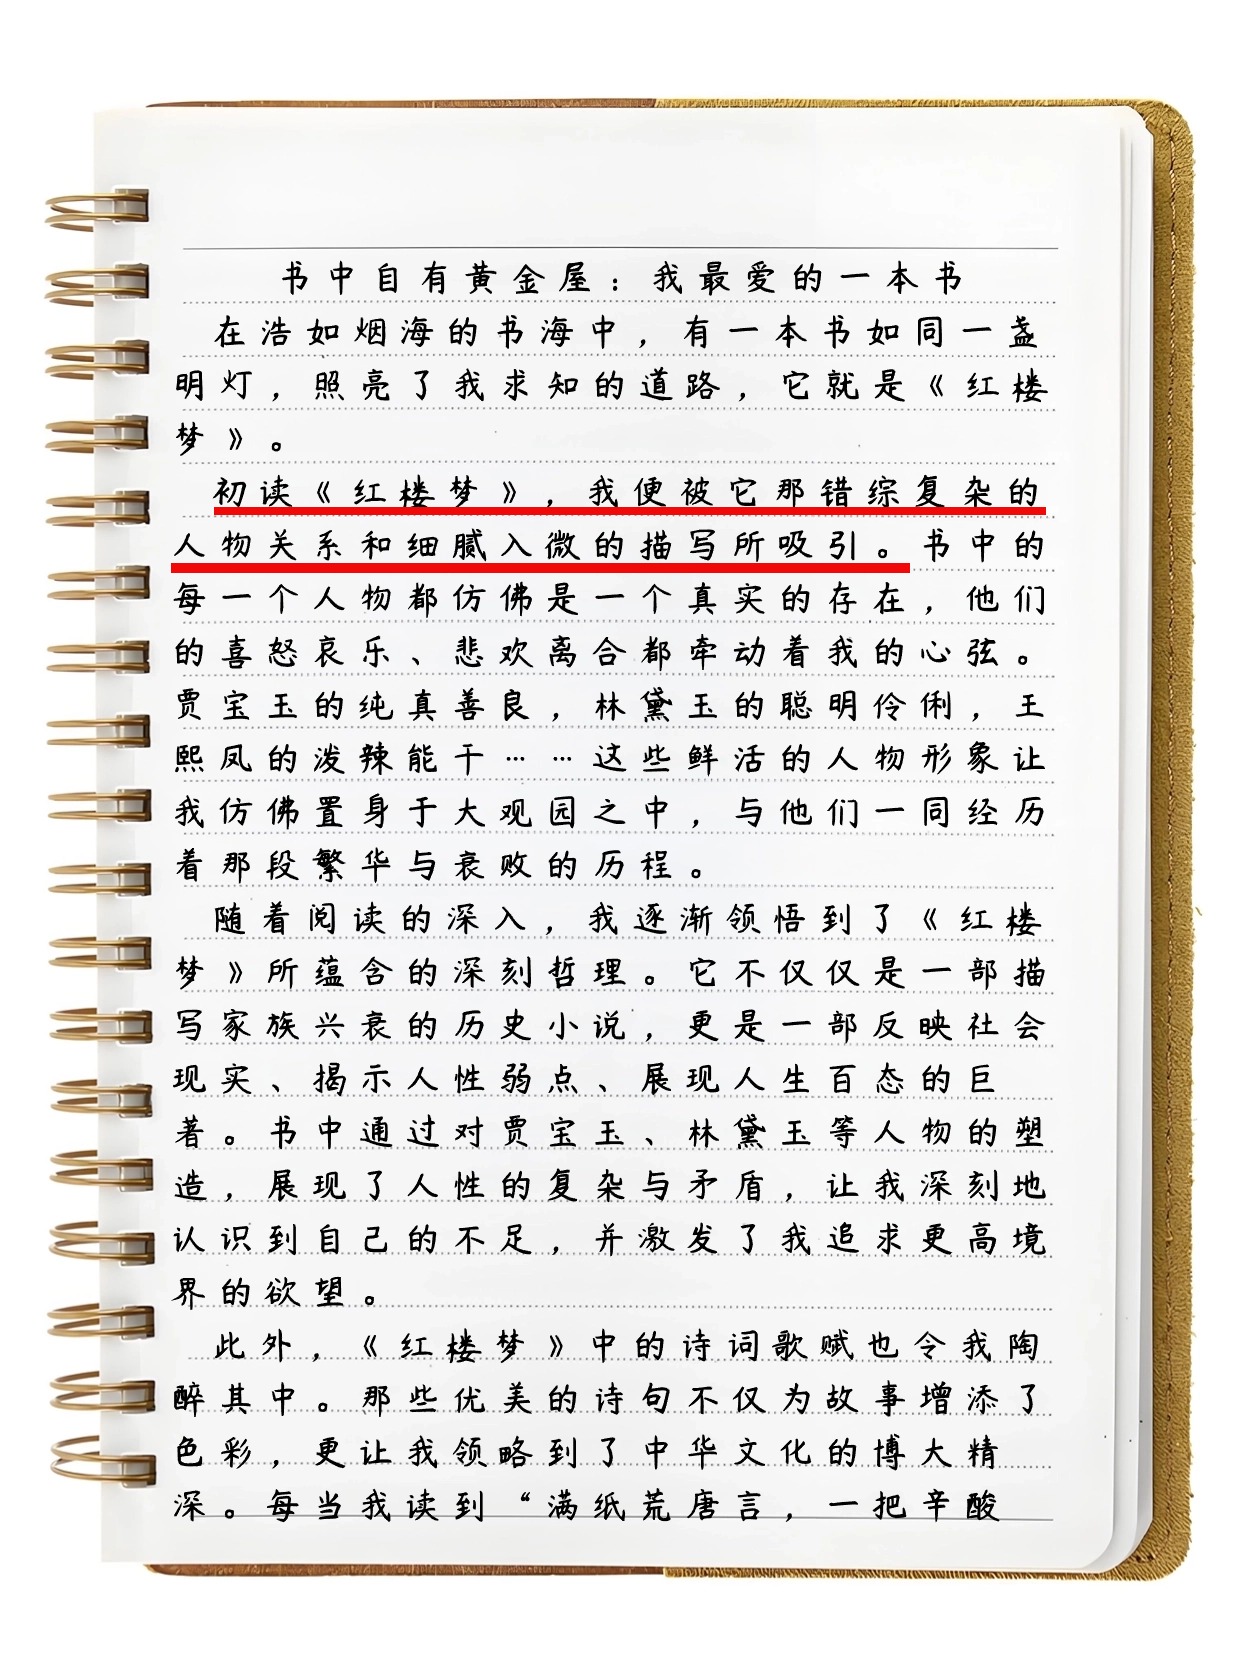 书中自有黄金屋：我最爱的一本书
在浩如烟海的书海中，有一本书如同一盏
明灯，照亮了我求知的道路，它就是《红楼
梦》。
初读《红楼梦》，我便被它那错综复杂的
人物关系和细腻入微的描写所吸引。书中的
每一个人物都仿佛是一个真实的存在，他们
的喜怒哀乐、悲欢离合都牵动着我的心弦。
贾宝玉的纯真善良，林黛玉的聪明伶俐，王
熙凤的泼辣能干……这些鲜活的人物形象让
我仿佛置身于大观园之中，与他们一同经历
着那段繁华与衰败的历程。
随着阅读的深入，我逐渐领悟到了《红楼
梦》所蕴含的深刻哲理。它不仅仅是一部描
写家族兴衰的历史小说，更是一部反映社会
现实、揭示人性弱点、展现人生百态的巨
著。书中通过对贾宝玉、林黛玉等人物的塑
造，展现了人性的复杂与矛盾，让我深刻地
认识到自己的不足，并激发了我追求更高境
界的欲望。
此外，《红楼梦》中的诗词歌赋也令我陶
醉其中。那些优美的诗句不仅为故事增添了
色彩，更让我领略到了中华文化的博大精
深。每当我读到“满纸荒唐言，一把辛酸